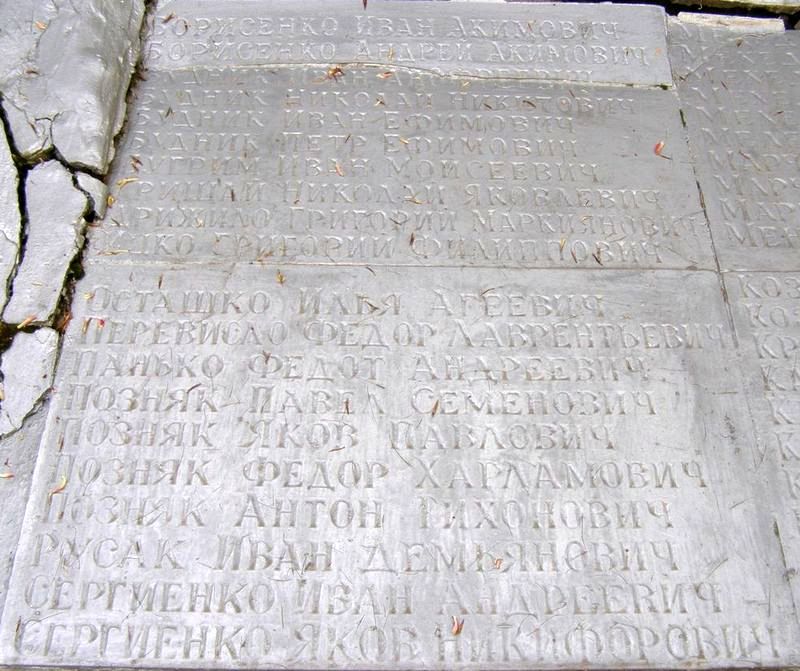 БОРИСЕНКО ИВАН АКИМОВИЧ
БОРИСЕНКО АНДРЕЙ АКИМОВИЧ
ИВАН
БУДНИК НИКОЛАЙ НИКИТОВИЧ
БУДНИК ИВАН ЕФИМОВИЧ
БУДНИК ПЕТР ЕФИМОВИЧ
ИВАН МОИСЕЕВИЧ
НИКОЛАЙ ЯКОВЛЕВИЧ
ГРИГОРИЙ МАРКИЯНОВИЧ
ГРИГОРИЙ ФИЛИППОВИЧ
ОСТАШКО ИЛЬЯ АГЕЕВИЧ
ПЕРЕВИСЛО ФЕДОР ЛАВРЕНТЬЕВИЧ
ПАНЬКО ФЕДОТ АНДРЕЕВИЧ
ПОЗНЯК ПАВЕЛ СЕМЕНОВИЧ
ПОЗНЯК ЯКОВ ПАВЛОВИЧ
ПОЗНЯК ФЕДОР ХАРЛАМОВИЧ
ПОЗНЯК АНТОН ТИХОНОВИЧ
РУСАК ИВАН ДЕМЬЯНОВИЧ
СЕРГИЕНКО ИВАН АНДРЕЕВИЧ
СЕРГИЕНКО ЯКОВ НИКИФОРОВИЧ